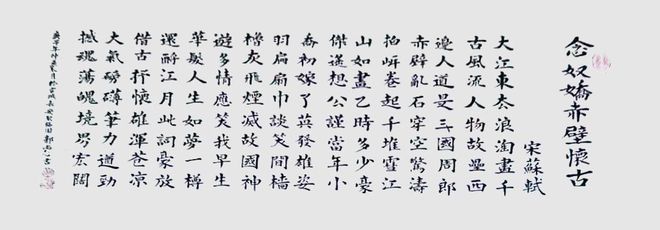 念奴嬌赤壁懷古
宋蘇軾
大江東去浪淘盡千
古風流人物故壘西
邊人道是三國周郎
赤壁亂石穿空驚濤
拍岸卷起千堆雪江
山如畫乙時多少豪
傑遙想公謹當年小
喬初嫁了英發雄姿
羽扇扇巾談笑間檣
櫓灰飛煙滅故國神
遊多情應笑我早生
華髮人生如夢一樽
還酹江月此詞豪放
借古抒懷雄渾蒼涼
大氣磅礴筆力遒勁
撼魂蕩魄境界宏闊
庚子年仲月於古城長安